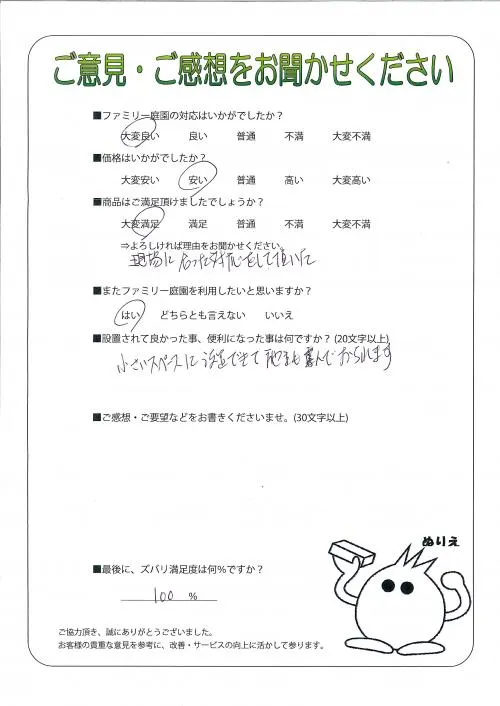 ご意見・ご感想をお聞かせください
■ファミリー庭園の対応はいかがでしたか？
大変良い 良い 普通 不満 大変不満
■価格はいかがでしたか？
大変安い 安い 普通 高い 大変高い
■商品はご満足頂けましたでしょうか？
大変満足 満足 普通 不満 大変不満
⇒よろしければ理由をお聞かせください。
現場に合った対応をして頂いた
■またファミリー庭園を利用したいと思いますか？
はい どちらとも言えない いいえ
■設置されて良かった事、便利になった事は何ですか？(20文字以上)
小さいスペースに設置できて 喜んでおられます
■ご感想・ご要望などをお書きくださいませ。(30文字以上)
ぬりえ
■最後に、ズバリ満足度は何%ですか？
100 %
ご協力頂き、誠にありがとうございました。
お客様の貴重な意見を参考に、改善・サービスの向上に活かして参ります。